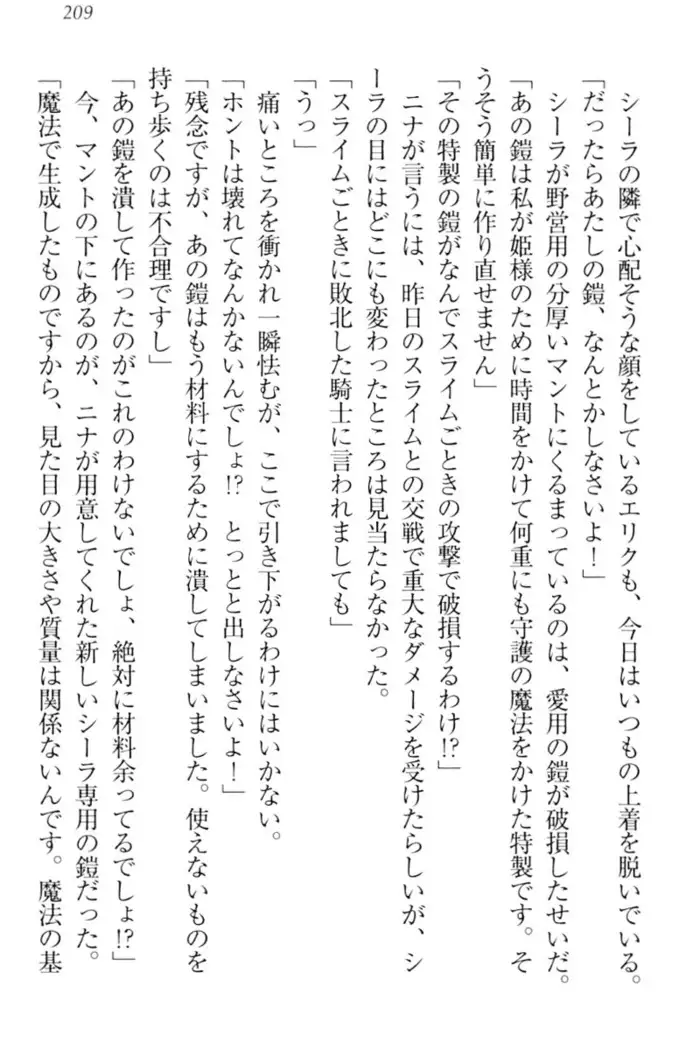 209
シーラの隣で心配そうな顔をしているエリクも、今日はいつもの上着を脱いでいる。
「だったらあたしの鎧、なんとかしなさいよ！」
シーラが野営用の分厚いマントにくるまっているのは、愛用の鎧が破損したせいだ。
「あの鎧は私が姫様のために時間をかけて何重にも守護の魔法をかけた特製です。そ
うそう簡単に作り直せません」
「その特製の鎧がなんでスライムごときの攻撃で破損するわけ!?」
ニナが言うには、昨日のスライムとの交戦で重大なダメージを受けたらしいが、シ
ーラの目にはどこにも変わったところは見当たらなかった。
「スライムごときに敗北した騎士に言われましても」
「うっ」
痛いところを衝かれ一瞬怯むが、ここで引き下がるわけにはいかない。
「ホントは壊れてなんかないんでしょ!?　とっとと出しなさいよ！」
「残念ですが、あの鎧はもう材料にするために潰してしまいました。使えないものを
持ち歩くのは不合理ですし」
「あの鎧を潰して作ったのがこれのわけないでしょ、絶対に材料余ってるでしょ!?」
今、マントの下にあるのが、ニナが用意してくれた新しいシーラ専用の鎧だった。
「魔法で生成したものですから、見た目の大きさや質量は関係ないんです。魔法の基